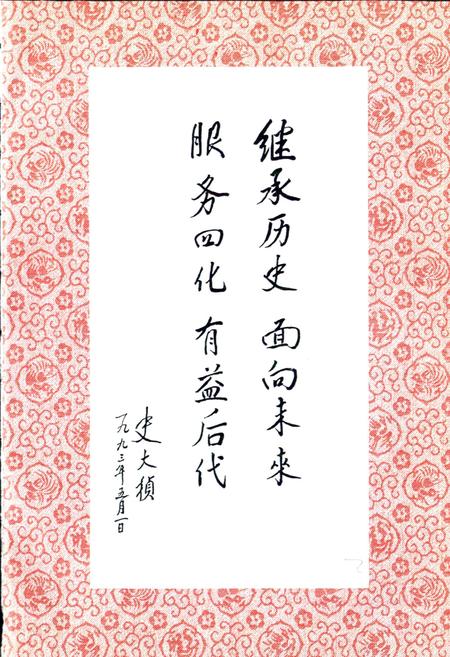 继承历史 面向未來
服务四化 有益后代
史大桢
一九九三年五月一日